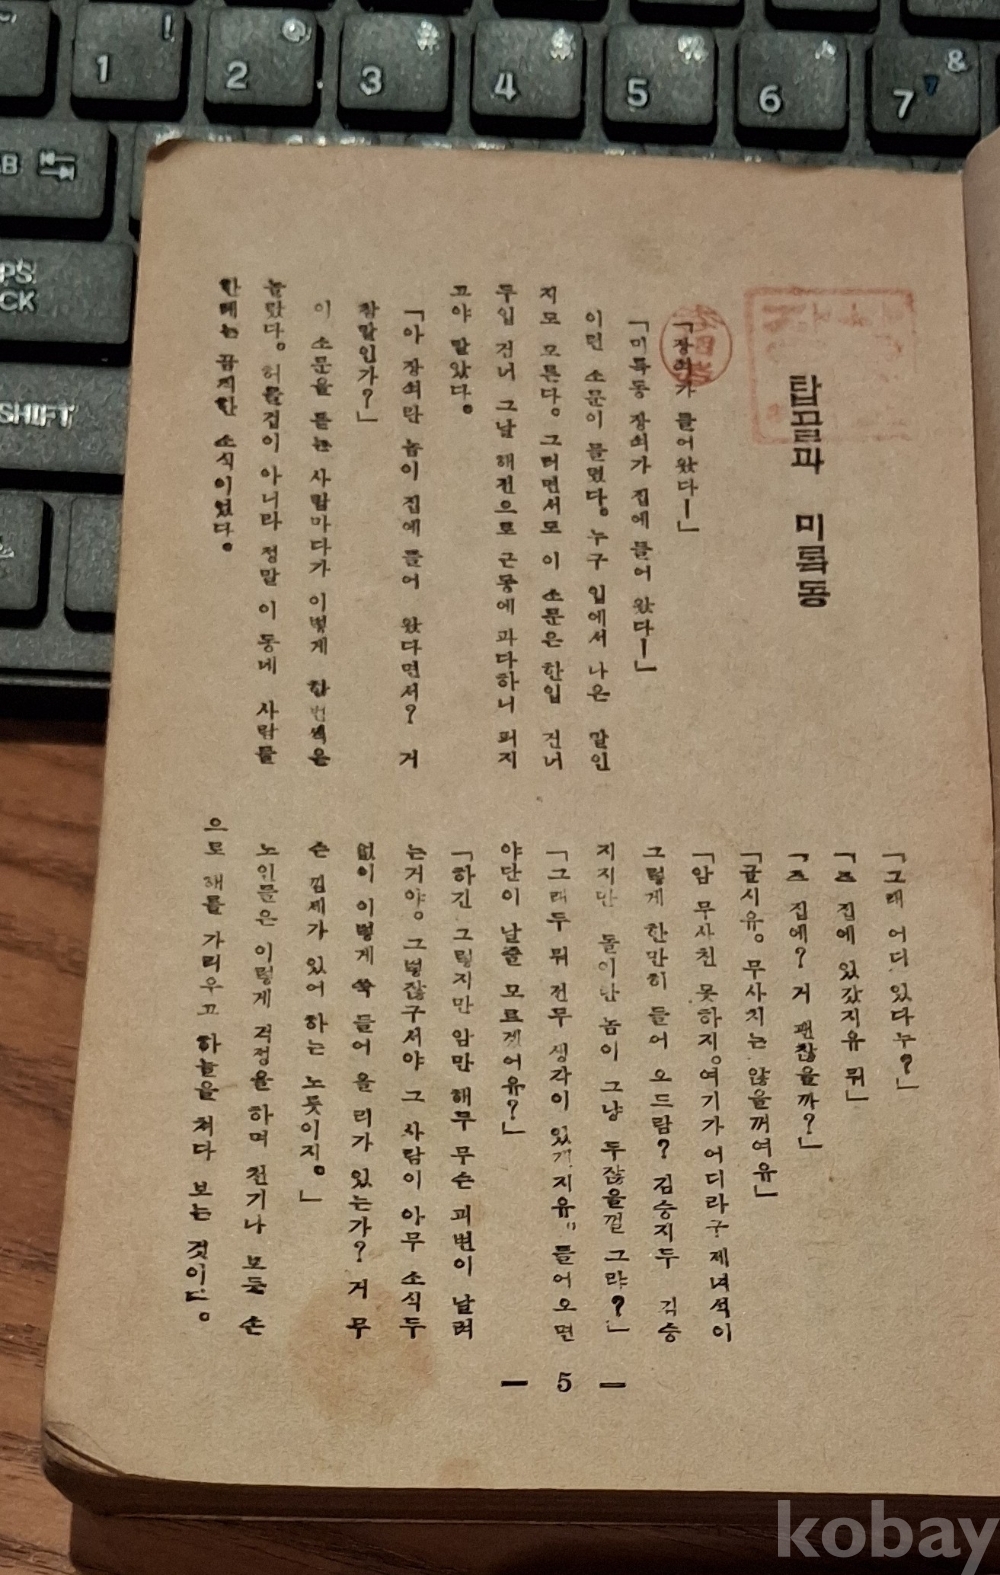 탑골과 미륵동
「장쇠가 들어 왔다ー」
「미륵동 장쇠가 집에 들어 왔다ー」
이런 소문이 들렸다。 누구 입에서 나온 말인
지도 모른다。 그러면서도 이 소문은 한입 건너
두입 건너 그날 해전으로 근동에 파다하니 퍼지
고야 말았다。
「아 장쇠란 놈이 집에 들어 왔다면서? 거
참말인가?」
이 소문을 듣는 사람마다가 이렇게 한번씩은
놀랐다。 허들겁이 아니라 정말 이 동네 사람들
한테는 끔찍한 소식이었다。
「그래 어디 있다누?」
「즈 집에 있갔지유 뭐」
「즈 집에? 거 괜찮을까?」
「글시유。 무사치는 않을꺼여유」
「암 무사친 못하지。 여기가 어디라구 제녀석이
그렇게 한만히 들어 오드람? 김승지두 김승
지지만 돌이란 놈이 그냥 두잖을껄 그랴?」
「그래두 뭐 전무 생각이 있겨지유。 들어오면
야단이 날줄 모르겠어유?」
「하긴 그렇지만 암만 해두 무슨 괴변이 날려
는거야。 그렇잖구서야 그 사람이 아무 소식두
없이 이렇게 쑥 들어 올 리가 있는가? 거 무
슨 낌새가 있어 하는 노릇이지。」
노인들은 이렇게 걱정을 하며 천기나 보듯 손
으로 해를 가리우고 하늘을 쳐다 보는 것이다。
— 5 —
1 !
2 @
3 #
4 $
5 %
6
7 &
SHIFT
kobay